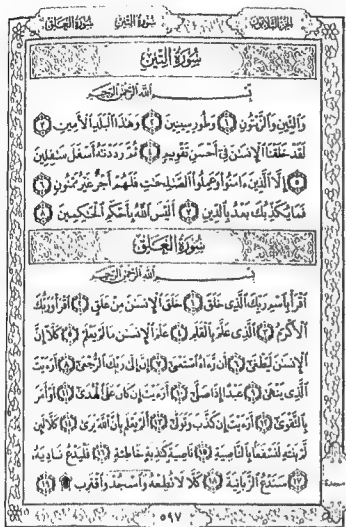 الجزء الثلاثون سورة التين سورة العلق
سورة التين
بسم الله الرحمن الرحيم
والتين والزيتون ١ وطور سينين ٢ وهذا البلد الأمين ٣
لقد خلقنا الإنسن في أحسن تقويم ٤ ثم رددنه أسفل سفلين
٥ إلا الذين ءامنوا وعملوا الصلحت فلهم أجر غير ممنون ٦
فما يكذبك بعد بالدين ٧ أليس الله بأحكم الحكمين ٨
سورة العلق
بسم الله الرحمن الرحيم
اقرأ باسم ربك الذي خلق ١ خلق الإنسن من علق ٢ اقرأ وربك
الأكرم ٣ الذي علم بالقلم ٤ علم الإنسن ما لم يعلم ٥ كلا إن
الإنسن ليطغى ٦ أن رءاه استغنى ٧ إن إلى ربك الرجعى ٨ أرءيت
الذي ينهى ٩ عبدا إذا صلى ١٠ أرءيت إن كان على الهدى ١١ أو أمر
بالتقوى ١٢ أرءيت إن كذب وتولى ١٣ ألم يعلم بأن الله يرى ١٤ كلا لئن
لم ينته لنسفعا بالناصية ١٥ ناصية كذبة خاطئة ١٦ فليدع ناديه
١٧ سندع الزبانية ١٨ كلا لا تطعه واسجد واقترب ۩ ١٩
سجدة
٥٩٧